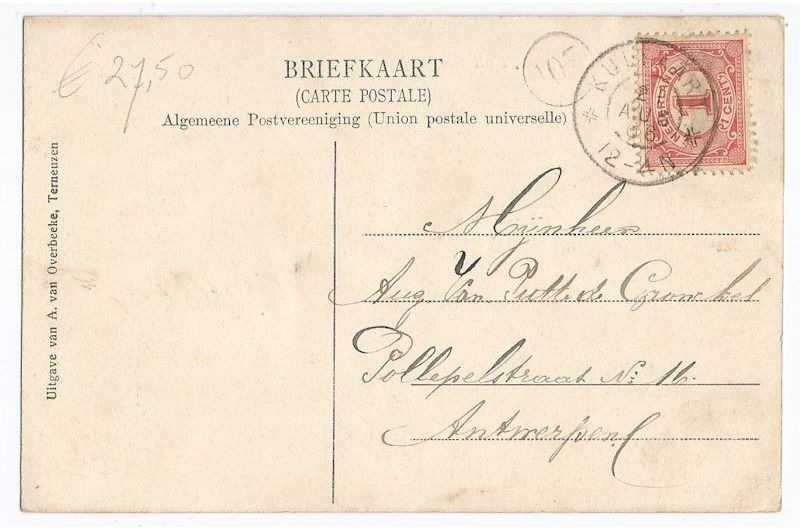 € 27,50
BRIEFKAART
(CARTE POSTALE)
Algemeene Postvereeniging (Union postale universelle)
Uitgave van A. van Overbeeke, Terneuzen
NEDERLAND
1
1 CENT
AUG
12-4N
Mijnheer
Aug Van Putte de
Pollepelstraat No 16.
Antwerpen